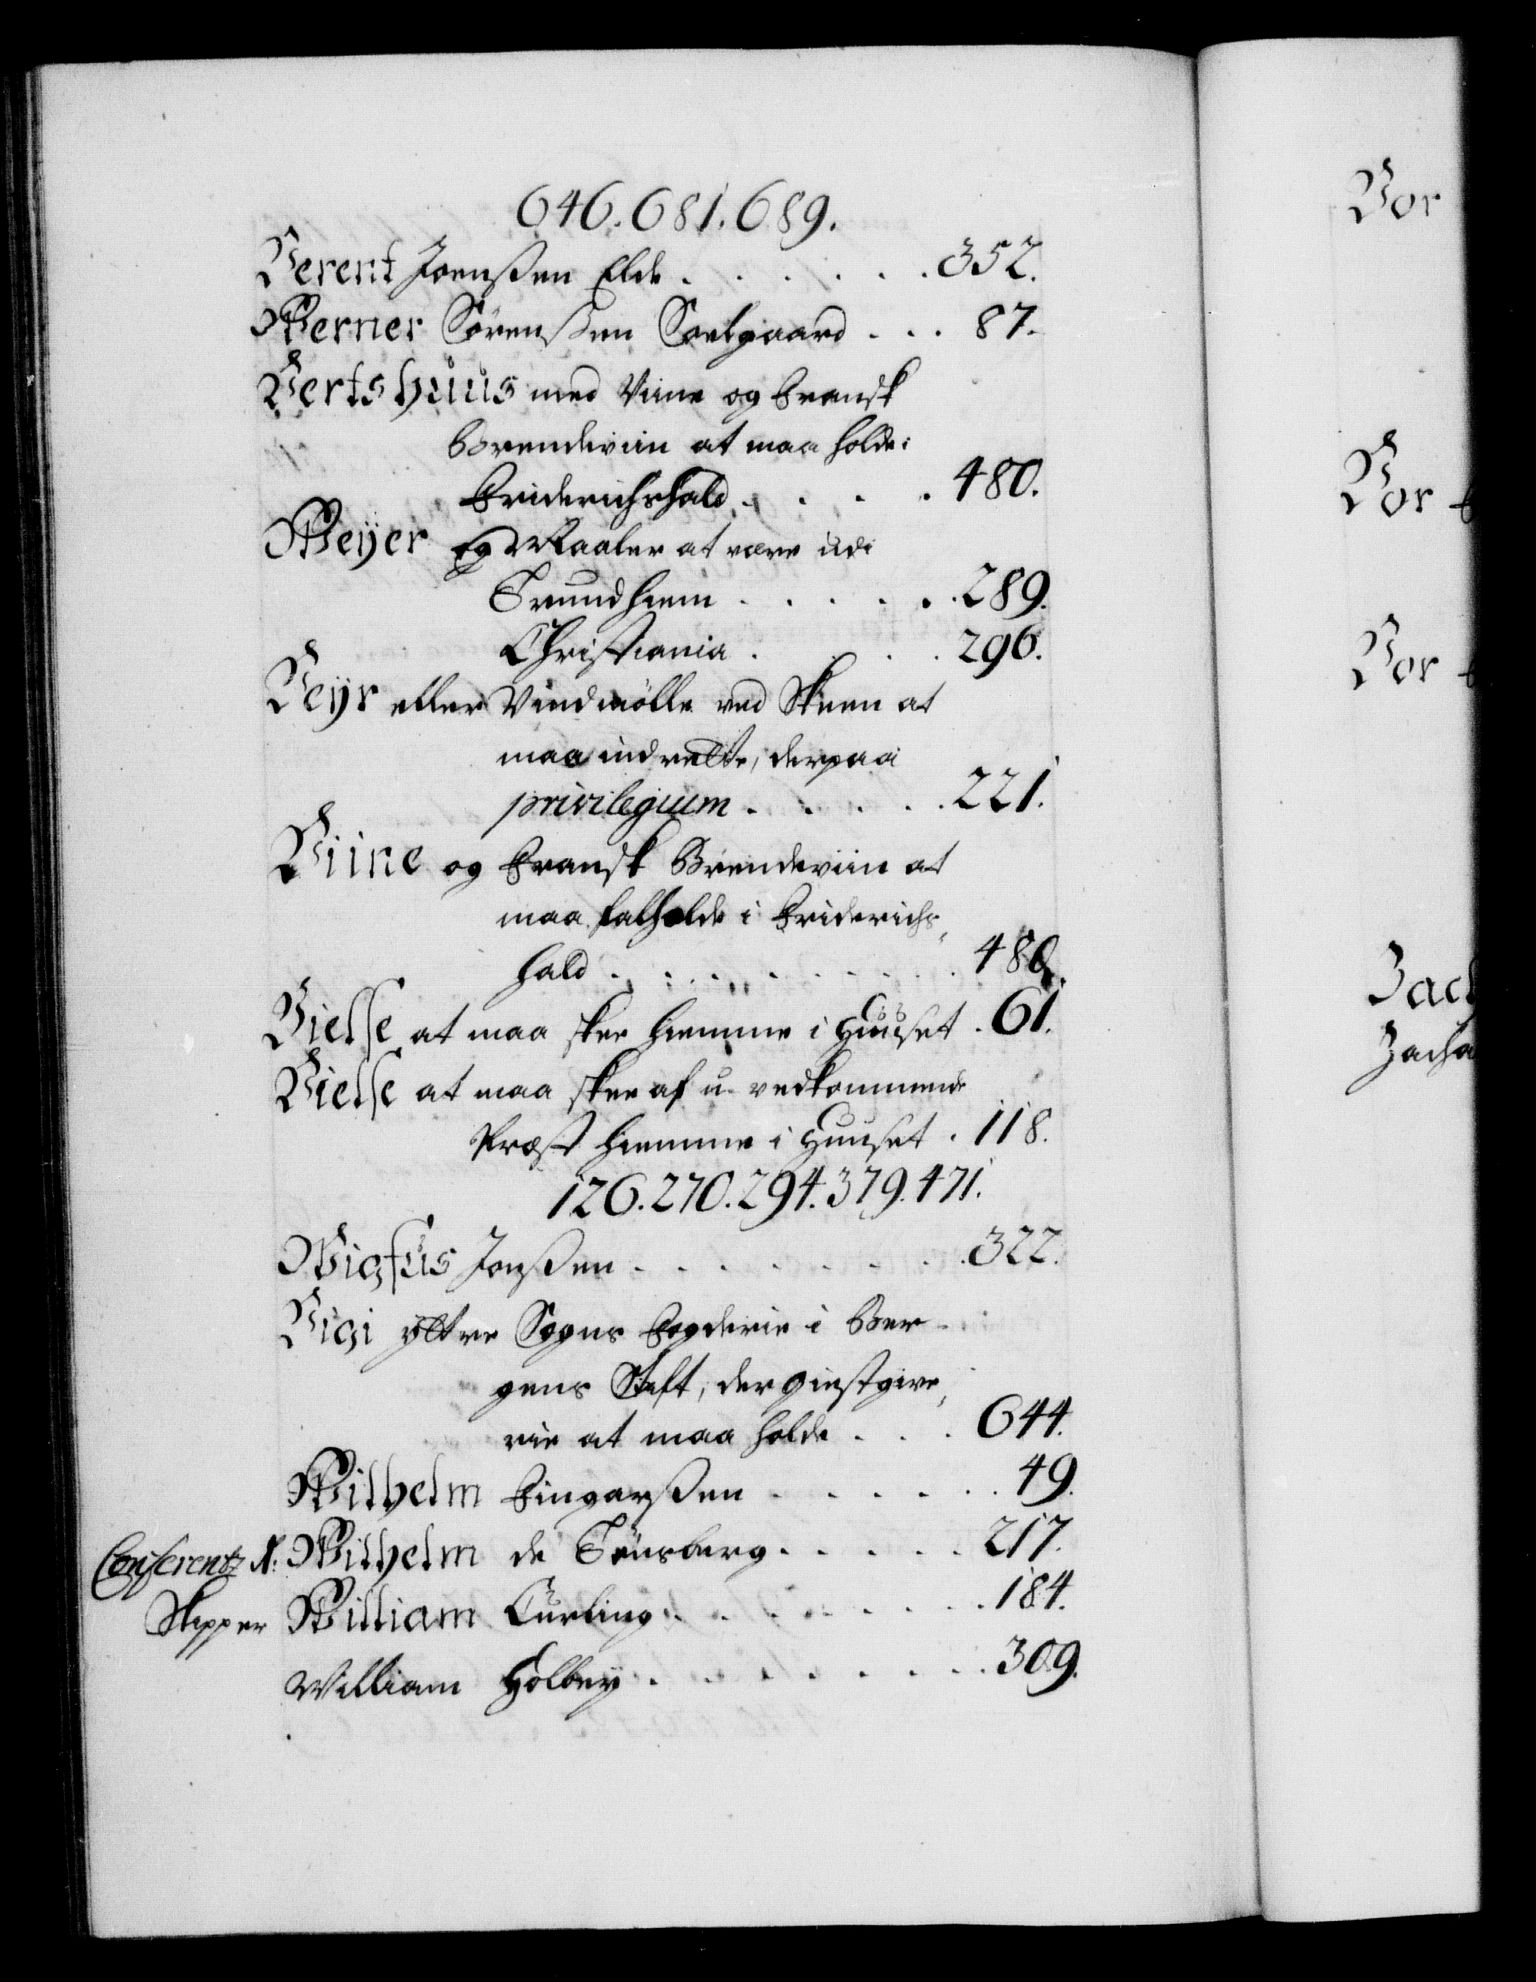 646. 681. 689.
Verent Joensßen Elde . . . . . . 352.
Werner Sörensßen Soelgaard . . . 87.
Vertshuus med Viine og Fransk
Brendeviin at maa holde i
Friderichshald . . . . 480.
Weyer og Maaler at være udi
Trundhiem . . . . . 289.
Christiania . . . . 296.
Veyr eller Vindmölle ved Skeen at
maa indrette, derpaa
privilegium . . . . . 221.
Viine og Fransk Brendeviin at
maa falholde i Friderichs-
hald . . . . . . . 480.
Vielse at maa skee hiemme i Huuset . 61.
Vielse at maa skee af u-vedkommende
Præst hiemme i Huuset . 118.
126. 270. 294. 379. 471.
Wigfus Jonsßen . . . . . . . 322.
Vigi yttre Sogns Fogderie i Ber-
gens Stift, der giestgive-
rie at maa holde . . . 644.
Wilhelm Fingarßen . . . . . . 49.
Conferentz R: Wilhelm de Tönsberg . . . . . 217.
Skipper William Curling . . . . . . . 184.
William Holbey . . . . . . . . 309.
Vor
Vor
Vor
Zach
Zacha